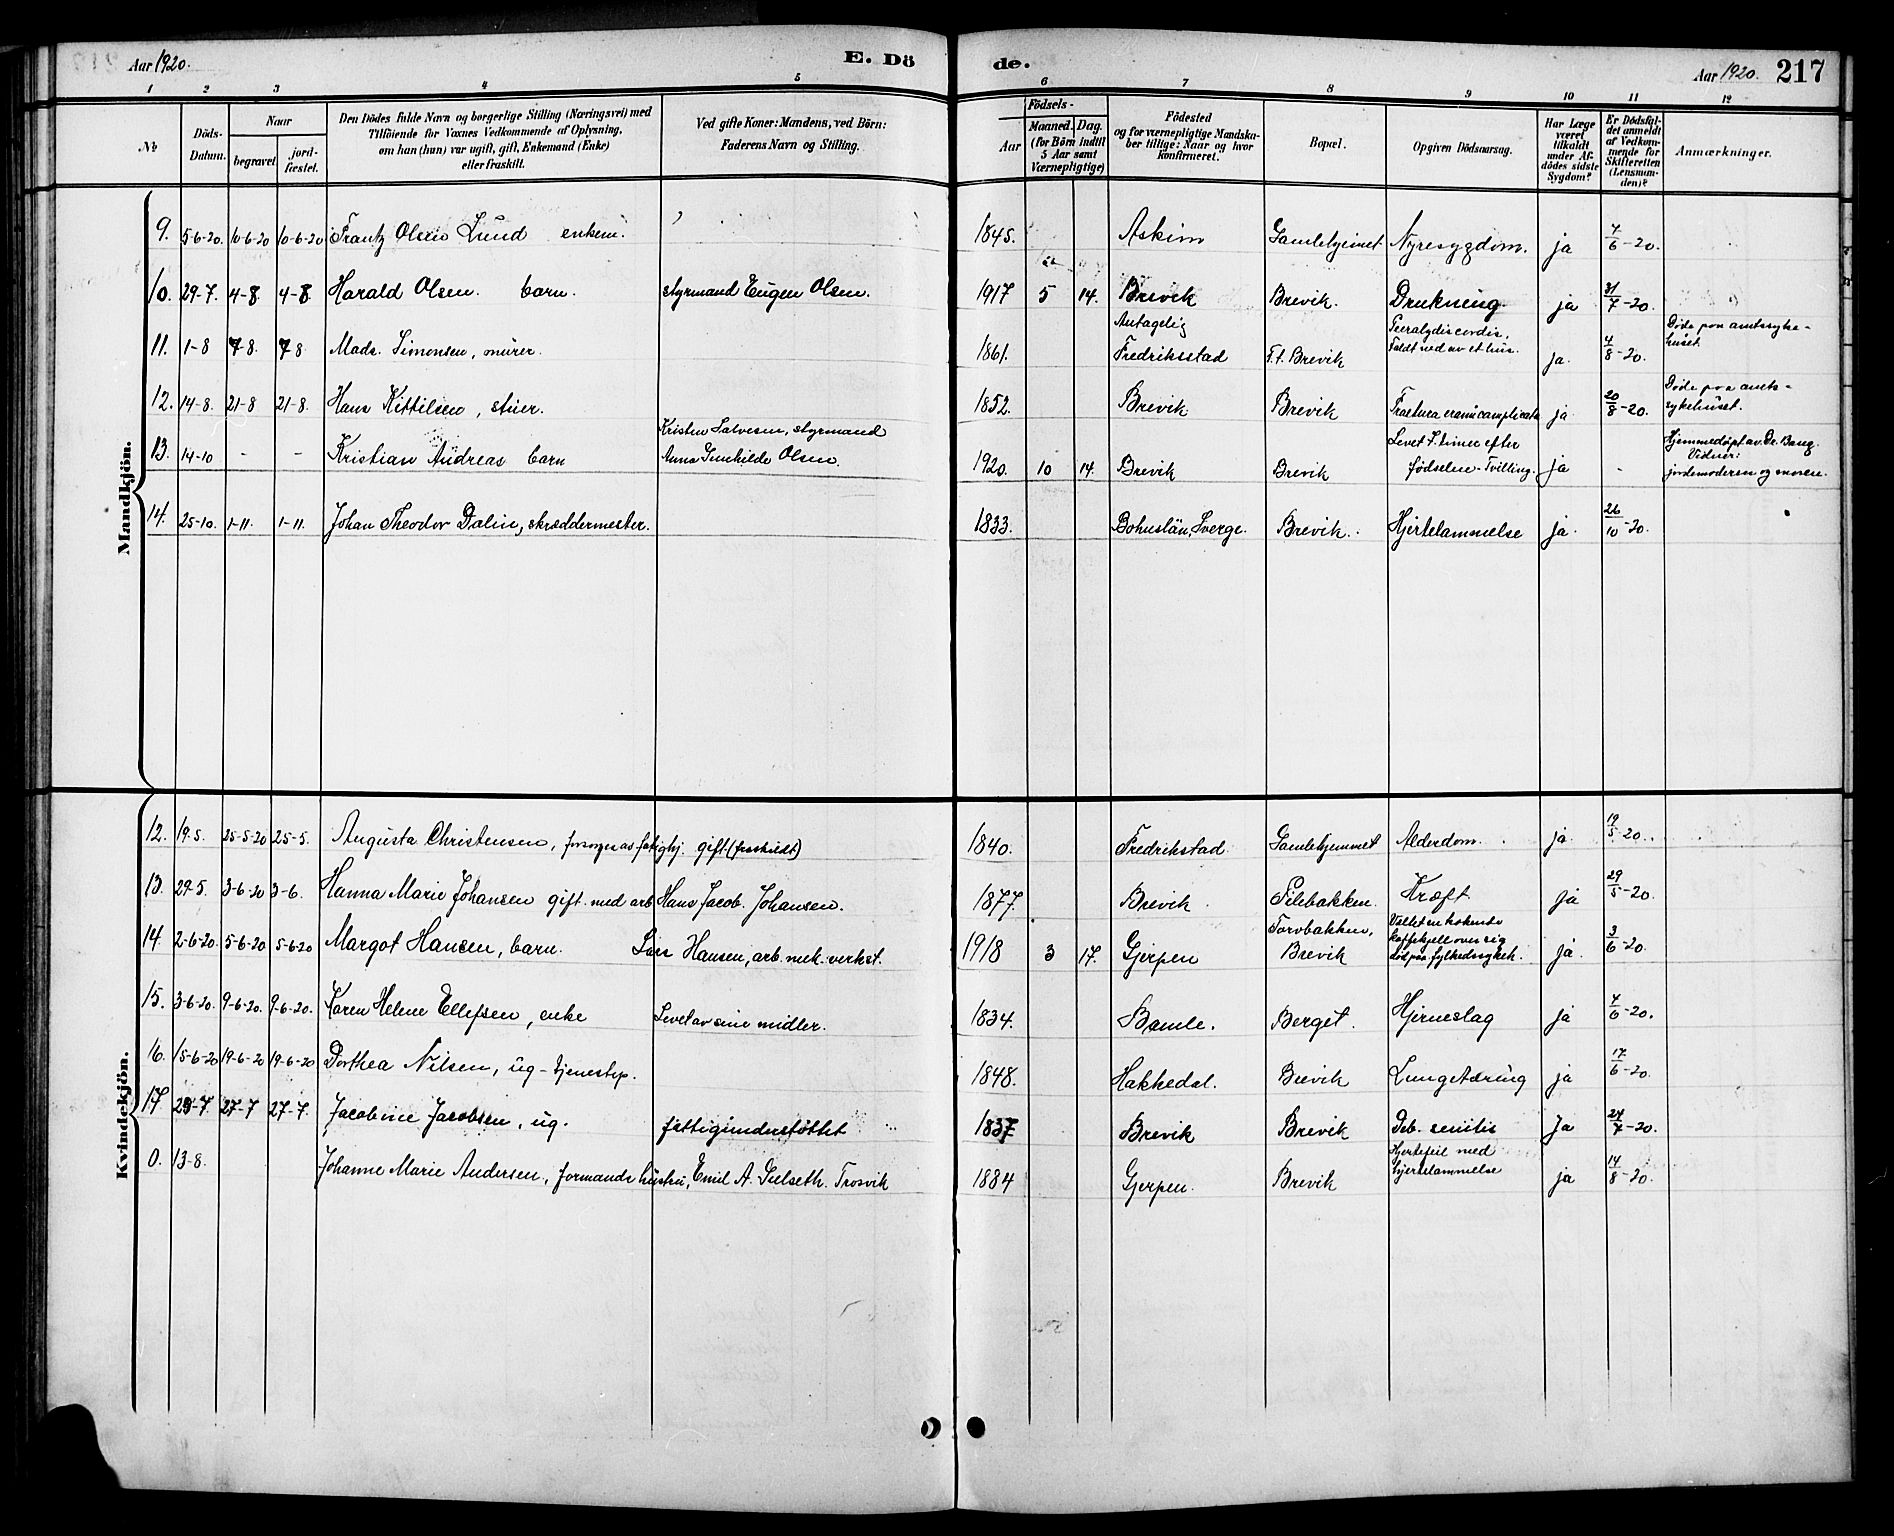 Aar 1920. E. Dö de. Aar 1920. 217
1 2 3 4 5 6 7 8 9 10 11 12
No
Döds-Datum.
Naar
begravet.
jord-fæstet.
Den Dödes fulde Navn og borgerlige Stilling (Næringsvei) med
Tilföiende for Voxnes Vedkommende af Oplysning,
om han (hun) var ugift, gift, Enkemand (Enke)
eller fraskilt.
Ved gifte Koner: Mandens, ved Börn:
Faderens Navn og Stilling.
Födsels-
Aar
Maaned. Dag.
(for Börn indtil
5 Aar samt
Værnepligtige)
Födested
og for værnepligtige Mandska-
ber tillige: Naar og hvor
Konfirmeret.
Bopæl.
Opgiven Dödsaarsag.
Har Læge
været
tilkaldt
under Af-
dödes sidste
Sygdom?
Er Dödsfal-
det anmeldt
af Vedkom-
mende for
Skifteretten
(Lensman-
den)?
Anmærkninger.
Mandkjön.
9. 5-6-20 10-6-20 10-6-20 Frantz Olsen Lund enkem. 1845. Askim Gamlehjemmet Nyresygdom. ja 7/6-20.
10. 29-7. 4-8. 4-8 Harald Olsen. barn. styrmand Eugen Olsen. 1917 5 14. Brevik Brevik. Drukning. ja 31/7-20.
11. 1-8 7-8. 7-8 Mads Simonsen, murer. 1861. Antagelig
Fredriksstad F.t. Brevik cordis,
Faldt ned av et hus. ja. 4/8-20. Döde paa amtssyke-
huset
12. 14-8. 21-8 21-8. Hans Kittilsen, stuer. 1852. Brevik Brevik Fractura cranii complicata ja 20/8-20. Döde paa amts-
sykehuset.
13. 14-10 - - Kristian Andreas barn Kristen Salvesen, styrmand
Anna Gunhilde Olsen. 1920. 10 14. Brevik Brevik Levet 7. timer efter
födselen-Tvilling. ja - Hjemmedöpt av Dr. Bang.
Vidner:
jordemoderen og moren.
14. 25-10. 1-11. 1-11. Johan Theodor Dalin, skræddermester. 1833. Bohuslän, Sverge. Brevik. Hjertelammelse ja 26/10-20.
Kvindekjön.
12. 19-5. 25-5-20 25-5. Augusta Christensen, forsorges av fatighj. gift (fraskildt) 1840. Fredrikstad Gamlehjemmet Alderdom. ja 19/5-20.
13. 29-5. 3-6-20 3-6. Hanna Marie Johansen gift med arb. Hans Jacob Johansen. 1877. Brevik. Pilebakken. Kræft ja 29/5-20.
14. 2-6-20. 5-6-20 5-6-20 Margot Hansen, barn. Lars Hansen, arb. mek. verkst. 1918 3 17. Gjerpen Torvbakken,
Brevik Veltet en kokende
kaffekjele over sig
död paa fylkedssykeh. ja 3/6-20.
15. 3-6-20. 9-6-20. 9-6-20. Karen Helene Ellefsen, enke Levet av sine midler. 1834. Bamle. Berget. Hjerneslag ja 4/6-20.
16. 15-6-20 19-6-20 19-6-20 Dorthea Nilsen, ug - tjenestep. 1848. Hakkedal. Brevik Lungetæring ja 17/6-20.
17 23-7 27-7 27-7. Jacobine Jacobsen, ug. fattigunderstöttet 1837 Brevik Brevik Deb. senilis Ja 24/7-20.
0. 13-8. Johanne Marie Andersen, formands hustru, Emil A. Trosvik 1884 Gjerpen. Brevik Hjertefeil med
hjertelammelse ja 14/8-20.